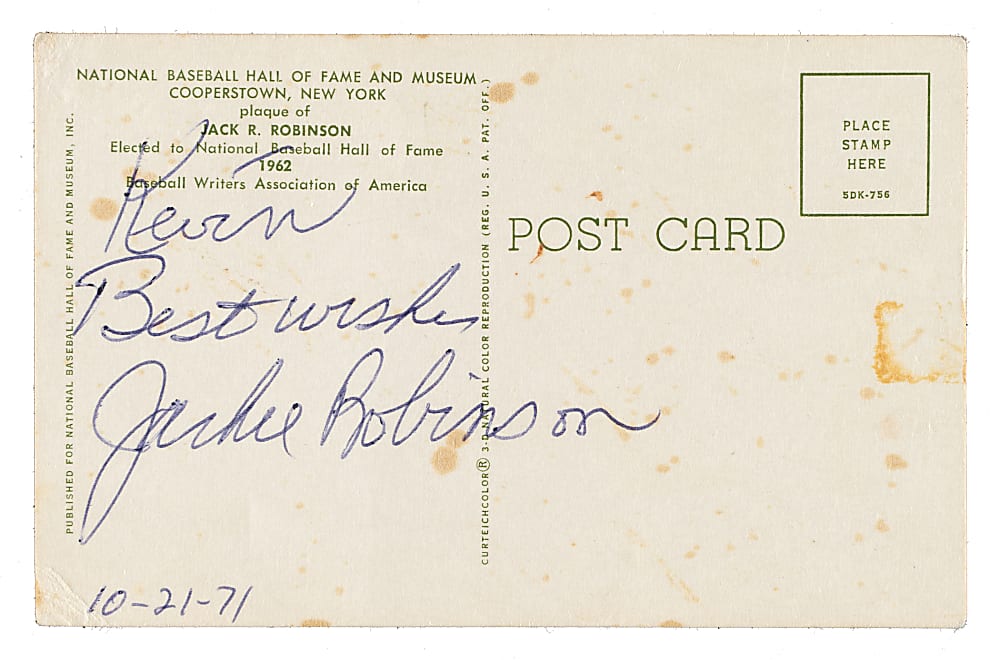 NATIONAL BASEBALL HALL OF FAME AND MUSEUM
COOPERSTOWN, NEW YORK
plaque of
JACK R. ROBINSON
Elected to National Baseball Hall of Fame
1962
Baseball Writers Association of America
Kevin
Best wishes
Jackie Robinson
10-21-71
PUBLISHED FOR NATIONAL BASEBALL HALL OF FAME AND MUSEUM, INC.
CURTEICHCOLOR® 3-D NATURAL COLOR REPRODUCTION (REG. U. S. A. PAT. OFF.)
POST CARD
PLACE
STAMP
HERE
5DK-756